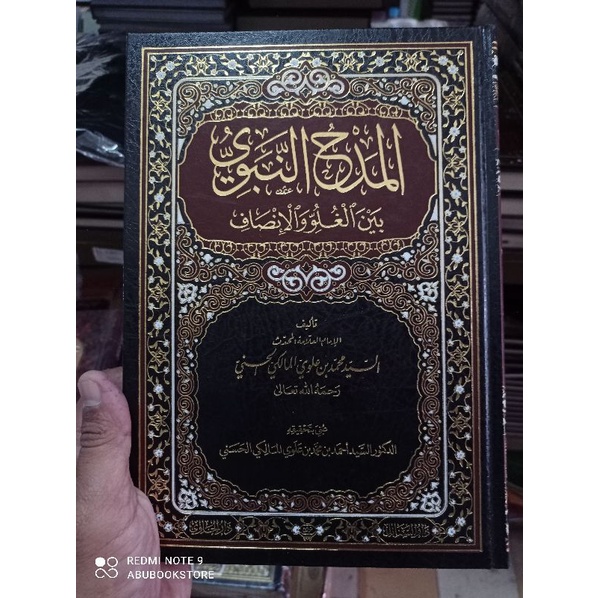 المَدْحُ النَّبَوِيُّ
بَيْنَ الْغُلُوِّ وَالْإِنْصَافِ
تأليف
الإمام العلامة المحدث
السيد محمد بن علوي المالكي الحسني
رحمه الله تعالى
عني بتحقيقه
الدكتور السيد أحمد بن محمد بن علوي المالكي الحسني
REDMI NOTE 9
ABUBOOKSTORE